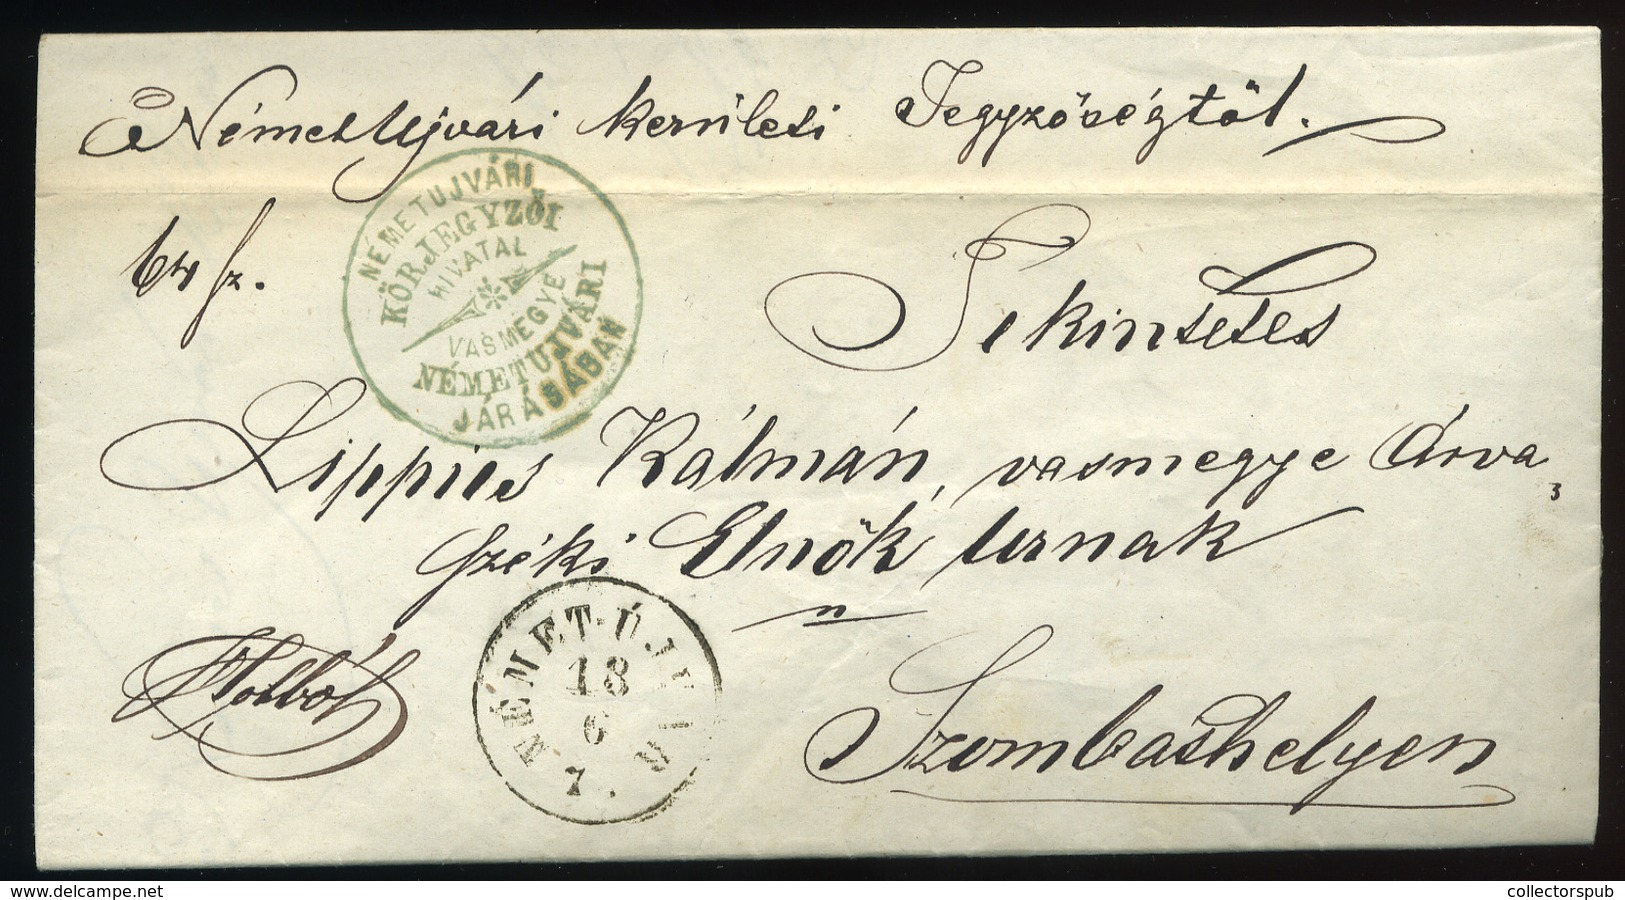 A Németujvári kerületi Jegyzőségtöl.
NÉMETUJVÁRI
KÖRJEGYZŐI
HIVATAL
VASMEGYE
NÉMETUJVÁRI
JÁRÁSÁBAN
Tekintetes
Lippics Kálmán, vasmegye Árva
széki Elnök Urnak
NÉMET-ÚJVÁR
18
6
7
Szombathelyen
www.delcampe.net
collectorspub